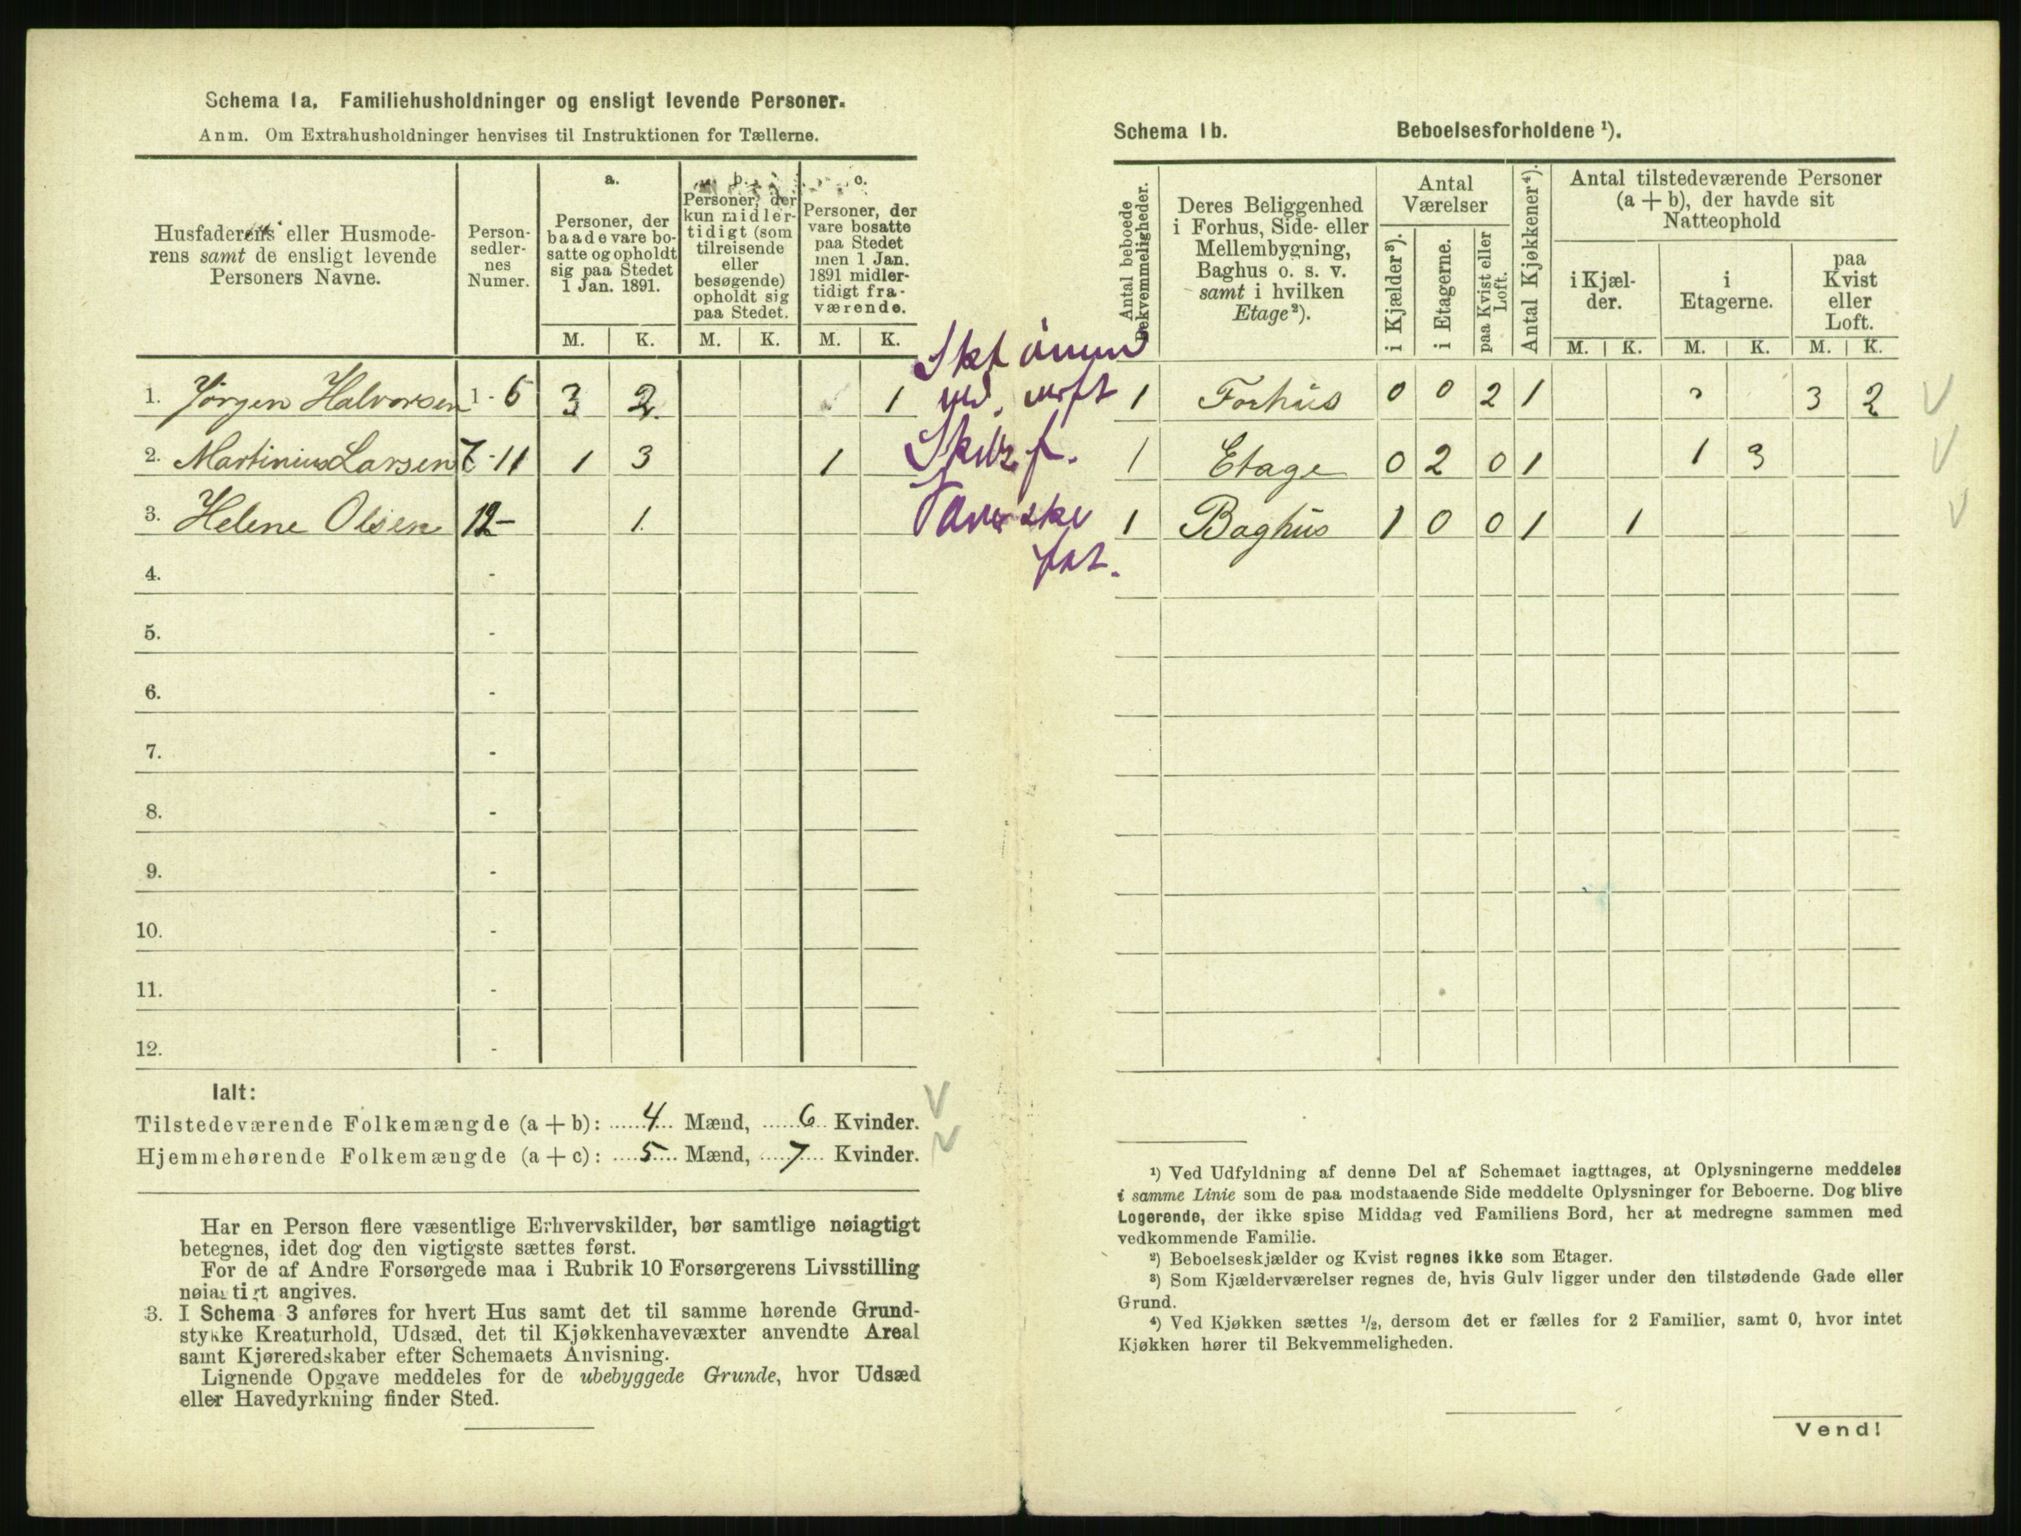 Schema 1a. Familiehusholdninger og ensligt levende Personer.
Anm. Om Extrahusholdninger henvises til Instruktionen for Tællerne.
Husfaderens eller Husmode-
rens samt de ensligt levende
Personers Navne.
Person-
sedler-
nes
Numer.
a.
Personer, der
baade vare bo-
satte og opholdt
sig paa Stedet
1 Jan. 1891.
b.
Personer, der
kun midler-
tidigt (som
tilreisende
eller
besøgende)
opholdt sig
paa Stedet.
c.
Personer, der
vare bosatte
paa Stedet
men 1 Jan.
1891 midler-
tidigt fra-
værende.
M. K. M. K. M. K.
1. Jörgen Halvorsen 1 - 6 3 2 1
2. Martinius Larsen 7 - 11 1 3 1
3. Helene Olsen 12 - 1
4. -
5. -
6. -
7. -
8. -
9. -
10. -
11. -
12. -
Ialt:
Tilstedeværende Folkemængde (a + b): 4 Mænd, 6 Kvinder.
Hjemmehørende Folkemængde (a + c): 5 Mænd, 7 Kvinder.
Har en Person flere væsentlige Erhvervskilder, bør samtlige nøiagtigt
betegnes, idet dog den vigtigste sættes først.
For de af Andre Forsørgede maa i Rubrik 10 Forsørgerens Livsstilling
nøiagtigt angives.
3. I Schema 3 anføres for hvert Hus samt det til samme hørende Grund-
stykke Kreaturhold, Udsæd, det til Kjøkkenhavevæxter anvendte Areal
samt Kjøreredskaber efter Schemaets Anvisning.
Lignende Opgave meddeles for de ubebyggede Grunde, hvor Udsæd
eller Havedyrkning finder Sted.
Schema 1b. Beboelsesforholdene ¹).
Antal beboede
Bekvemmeligheder.
Deres Beliggenhed
i Forhus, Side- eller
Mellembygning,
Baghus o. s. v.
samt i hvilken
Etage²).
Antal
Værelser
i Kjælder³).
i Etagerne.
paa Kvist eller
Loft.
Antal Kjøkkener⁴).
Antal tilstedeværende Personer
(a + b), der havde sit
Natteophold
i Kjæl-
der.
i
Etagerne.
paa
Kvist
eller
Loft.
M. K. M. K. M. K.
1 Forhus 0 0 2 1 3 2
1 Etage 0 2 0 1 1 3
1 Baghus 1 0 0 1 1
¹) Ved Udfyldning af denne Del af Schemaet iagttages, at Oplysningerne meddeles
i samme Linie som de paa modstaaende Side meddelte Oplysninger for Beboerne. Dog blive
Logerende, der ikke spise Middag ved Familiens Bord, her at medregne sammen med
vedkommende Familie.
²) Beboelseskjælder og Kvist regnes ikke som Etager.
³) Som Kjælderværelser regnes de, hvis Gulv ligger under den tilstødende Gade eller
Grund.
⁴) Ved Kjøkken sættes ½, dersom det er fælles for 2 Familier, samt 0, hvor intet
Kjøkken hører til Bekvemmeligheden.
Vend!